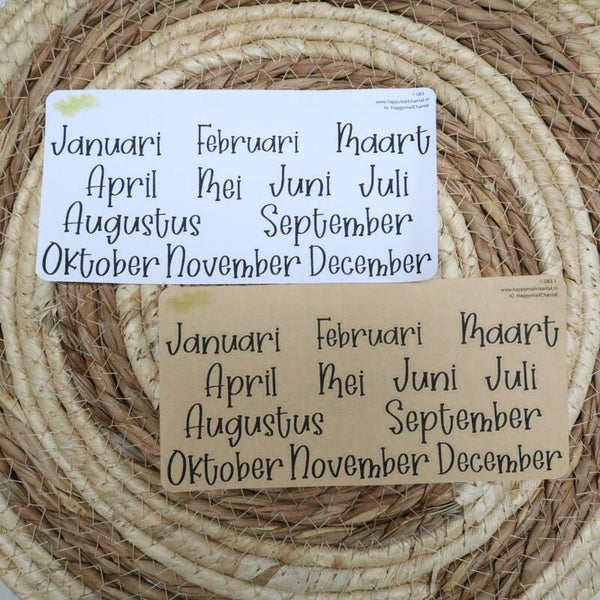 1-083
www.happymailchantal.nl
IG: HappymailChantal
Januari Februari Maart
April Mei Juni Juli
Augustus September
Oktober November December
1-083.1
www.happymailchantal.nl
IG: HappymailChantal
Januari Februari Maart
April Mei Juni Juli
Augustus September
Oktober November December